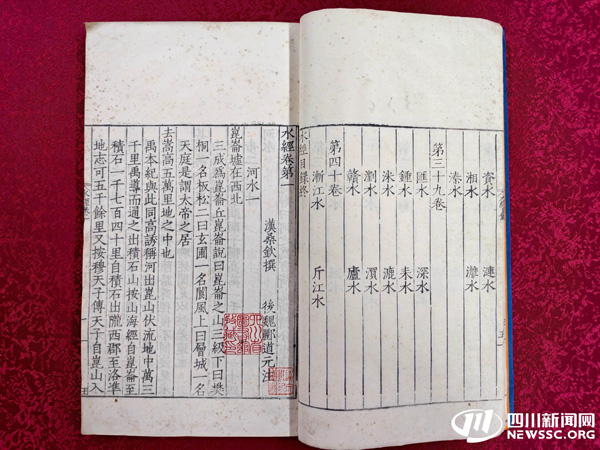 資水 漣水
湘水
溱水
第三十九卷
匯水 深水
鍾水 耒水
洣水 漉水
瀏水
贛水 廬水
第四十卷
漸江水 斤江水
水經目録終
水經卷第一
漢桑欽撰 後魏酈道元注
河水一
崑崙墟在西北
三成爲崑崙丘崑崙說曰崑崙之山三級下曰樊
桐一名板松二曰玄圃一名閬風上曰層城一名
天庭是謂太帝之居
去嵩高五萬里地之中也
禹本紀與此同高誘稱河出崑山伏流地中萬三
千里禹導而通之出積石山按山海經自崑崙至
積石一千七百四十里自積石出隴西郡至洛準
地志可五千餘里又按穆天子傳天子自崑山入
四川新闻网
NEWSSC.ORG